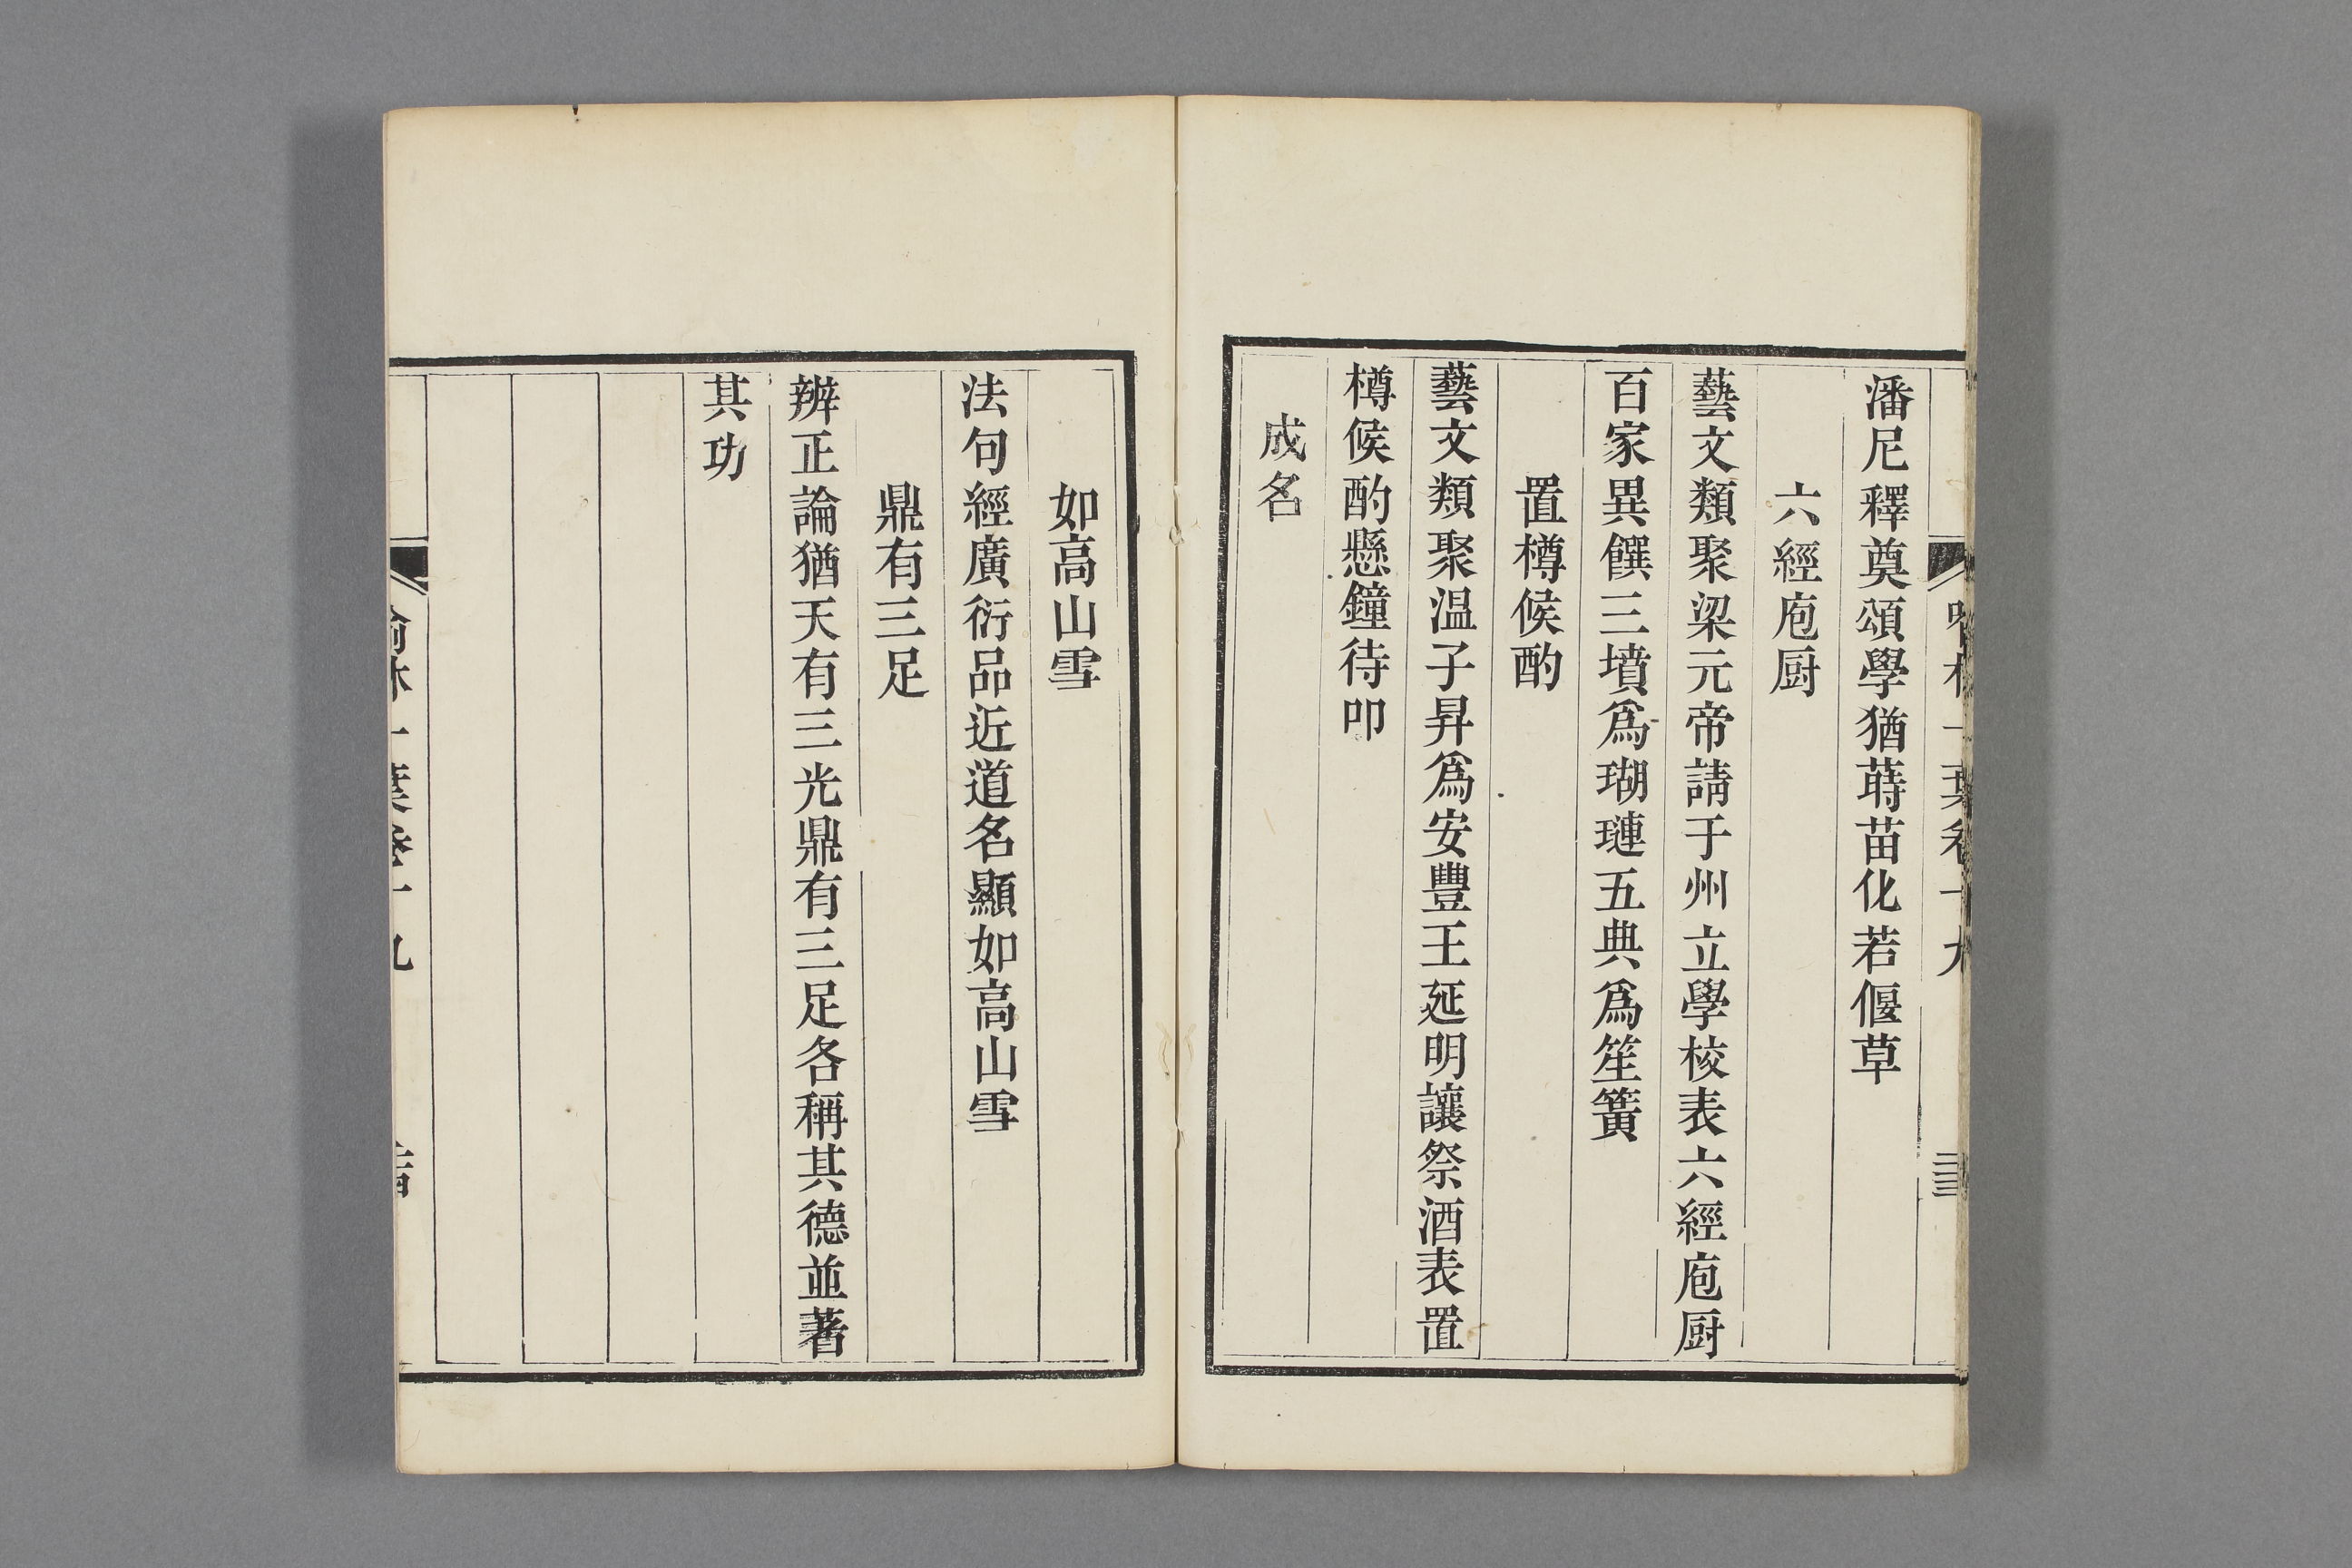 潘尼釋奠頌學猶蒔苗化若偃草
六經庖厨
藝文類聚梁元帝請于州立學校表六經庖厨
百家異饌三墳爲瑚璉五典爲笙簧
置樽候酌
藝文類聚温子昇爲安豐王延明讓祭酒表置
樽候酌懸鐘待叩
成名
如高山雪
法句經廣衍品近道名顯如高山雪
鼎有三足
辨正論猶天有三光鼎有三足各稱其德並著
其功